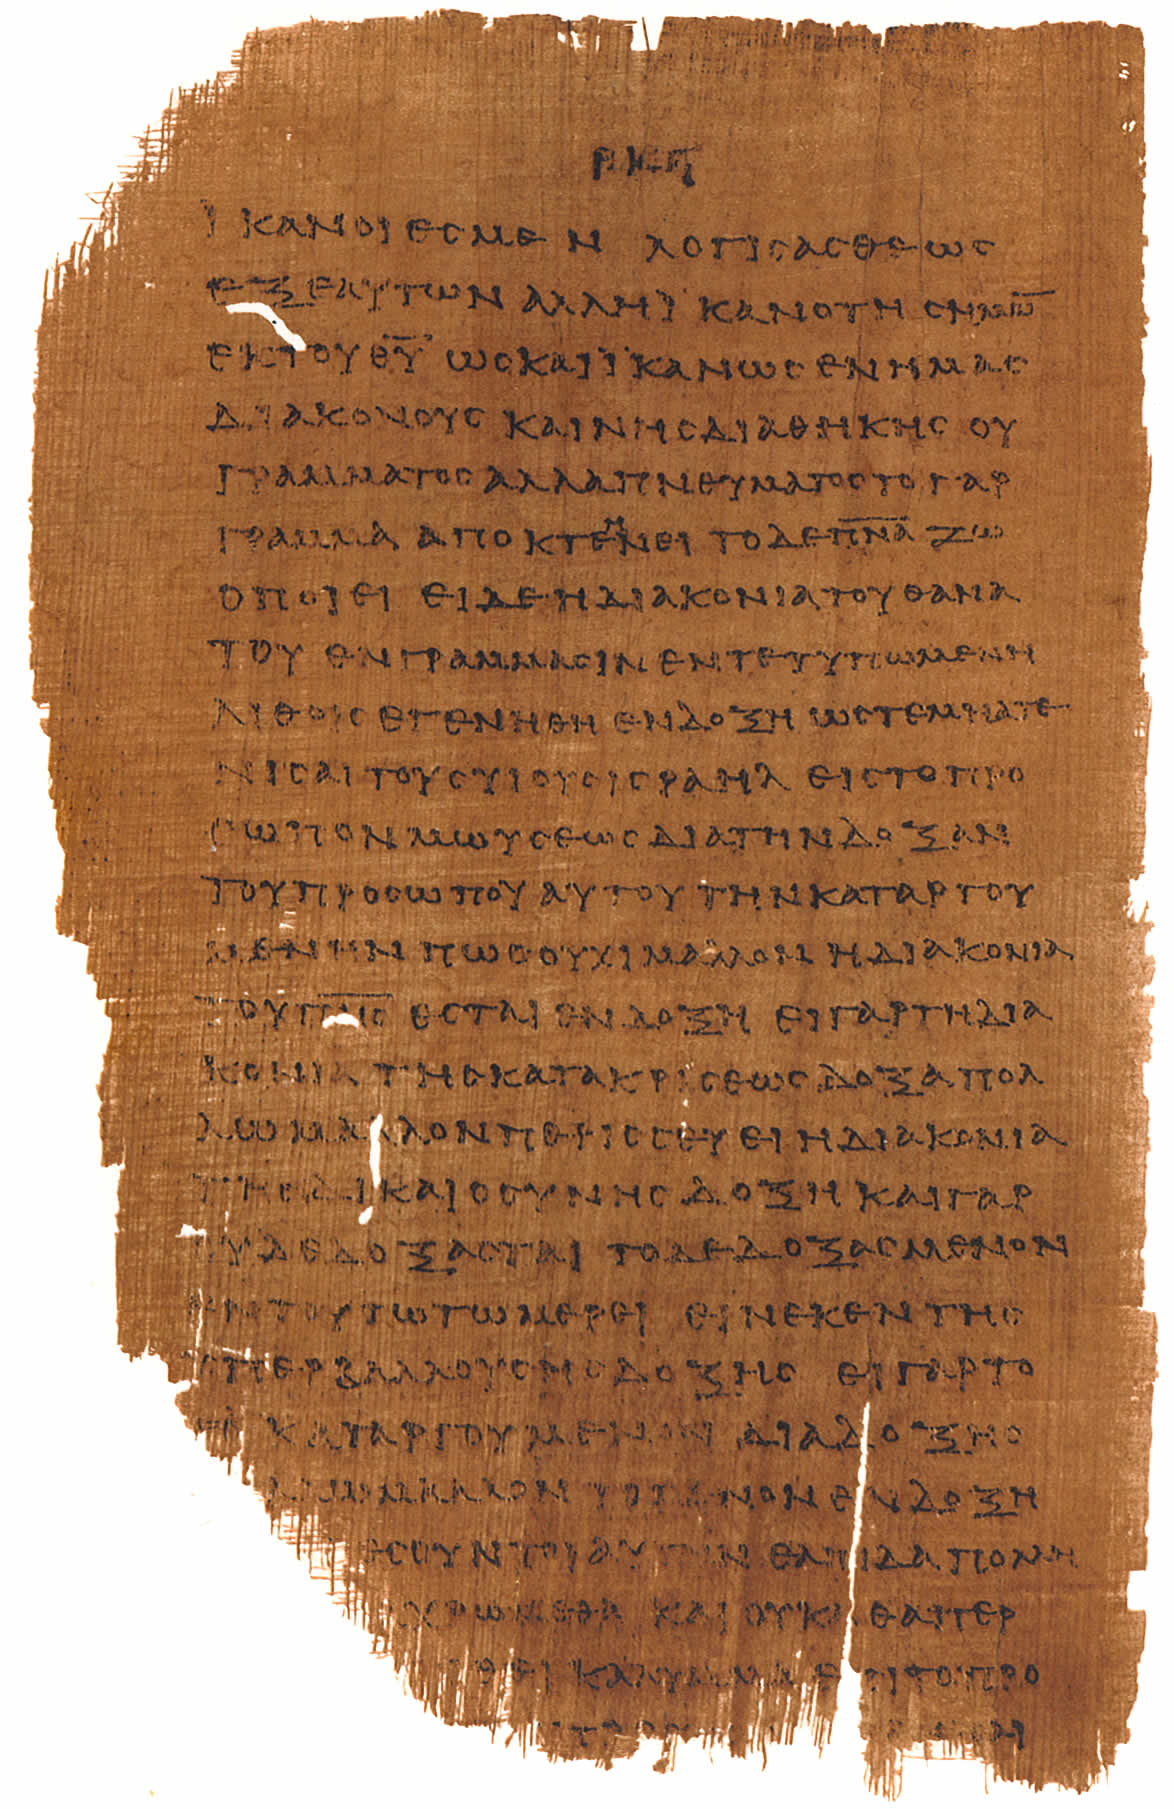 ϊκανοι εσμεν λογισασθε ως
εξ εαυτων αλλ η ϊκανοτης ημω̅
εκ του θ̅υ̅ ως και ϊκανωσεν ημας
διακονους καινης διαθηκης ου
γραμματος αλλα πνευματος το γαρ
γραμμα αποκτεννει το δε π̅ν̅α̅ ζω
οποιει ει δε η διακονια του θανα
του εν γραμμασιν εντετυπωμενη
λιθοις εγενηθη εν δοξη ωστε μη ατε
νισαι τους υιους ισραηλ εις το προ
σωπον μωυσεως δια την δοξαν
του προσωπου αυτου την καταργου
μενην πως ουχι μαλλον η διακονια
του π̅ν̅ς̅ εσται εν δοξη ει γαρ τη δια
κονια της κατακρισεως δοξα πολ
λω μαλλον περισσευει η διακονια
της δικαιοσυνης δοξη και γαρ
ου δεδοξασται το δεδοξασμενον
εν τουτω τω μερει εινεκεν της
υπερβαλλουσης δοξης ει γαρ το
καταργουμενον δια δοξης
μαλλον εν δοξη
ουν τοιαυτην ελπιδα πονη
χρωμεθα και ου καθαπερ
καλυμμα επι το προ